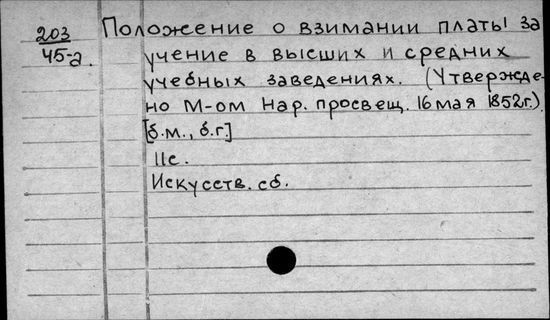 203
45-а.
Положение о взимании платы за
учение в высших и средних
учебных заведениях. (Утвержде-
но М-ом Нар. просвещ. 16 мая 1852г.).
[б.м., б.г.]
11с.
Искусств. сб.